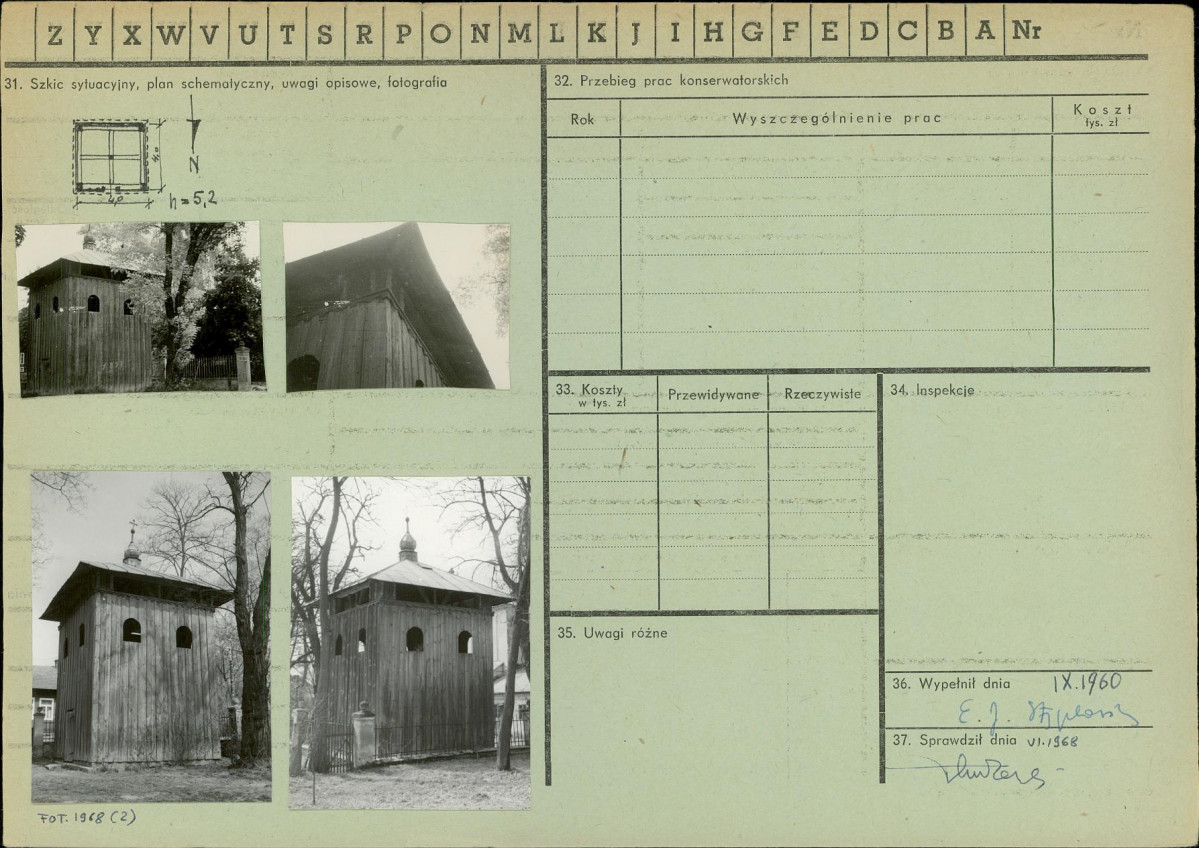 Z Y X W V U T S R P O N M L K J I H G F E D C B A Nr
31. Szkic sytuacyjny, plan schematyczny, uwagi opisowe, fotografia
N
4,0
4,0
h = 5,2
FOT. 1968 (2)
32. Przebieg prac konserwatorskich
Rok
Wyszczególnienie prac
Koszt
tys. zł
33. Koszty
w tys. zł
Przewidywane
Rzeczywiste
34. Inspekcje
35. Uwagi różne
36. Wypełnił dnia IX.1960
E. J.
37. Sprawdził dnia VI.1968